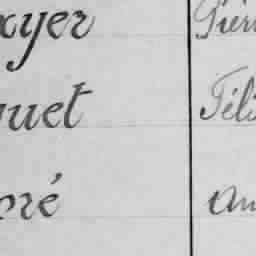 xyer Pierr
quet Féli
oré An